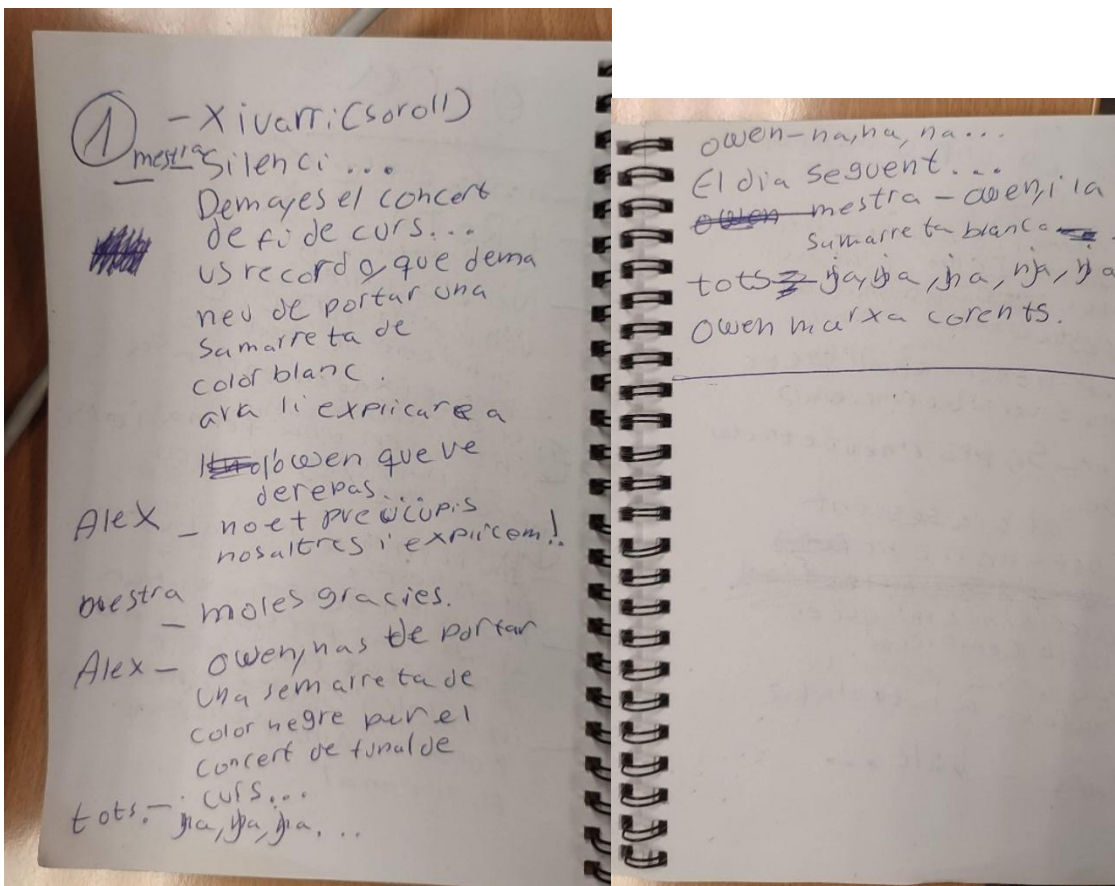 1 - Xivarri (soroll)
mestra Silenci...
Demayes el concert
de fi de curs...
us recordo, que dema
neu de portar una
Samarreta de
color blanc.
ara li explicare a
l'owen que ve
derepas...
Alex - no et preucupis
nosaltres i explicem!
mestra - moles gracies.
Alex - owen, has de portar
una semarreta de
color negre per el
concert de funal de
curs...
tots. - ja, ja, ja...
owen - ha, ha, ha...
El dia seguent...
mestra - owen, i la
samarreta blanca
tots ja, ja, ja, ja, ja
Owen marxa corents.